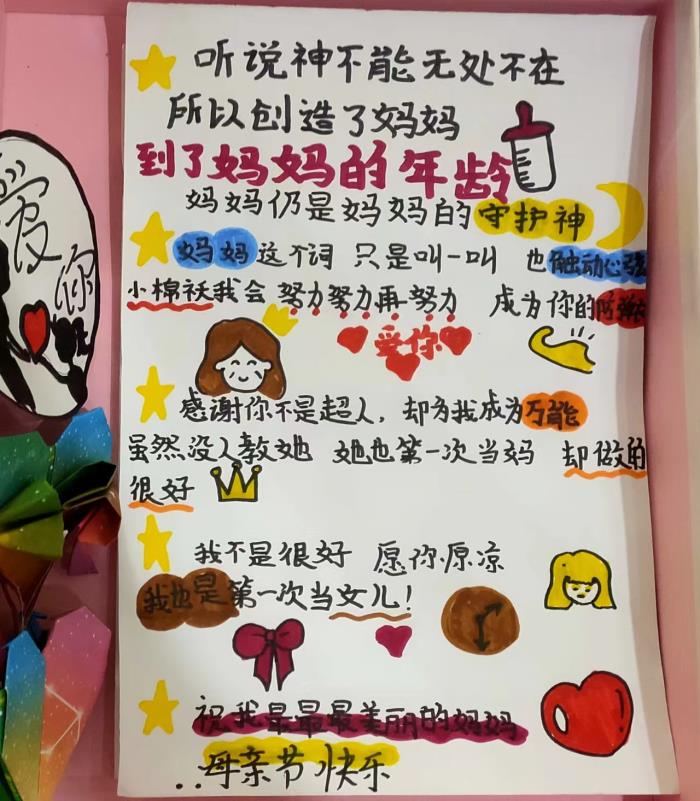 爱
你
听说神不能无处不在
所以创造了妈妈
到了妈妈的年龄
妈妈仍是妈妈的守护神
妈妈这个词 只是叫一叫 也触动心弦
小棉袄我会 努力努力再努力 成为你的防弹衣
爱你
感谢你不是超人,却为我成为万能
虽然没人教她 她也第一次当妈 却做的
很好
我不是很好 愿你原凉
我也是第一次当女儿!
祝我最最最美丽的妈妈
..母亲节快乐